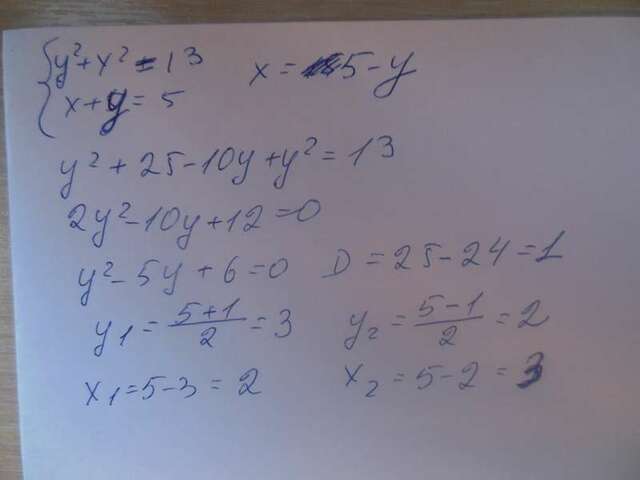 { y² + x² = 13
x + y = 5
x = 5 - y
y² + 25 - 10y + y² = 13
2y² - 10y + 12 = 0
y² - 5y + 6 = 0 D = 25 - 24 = 1
y₁ = (5+1)/2 = 3 y₂ = (5-1)/2 = 2
x₁ = 5 - 3 = 2 x₂ = 5 - 2 = 3